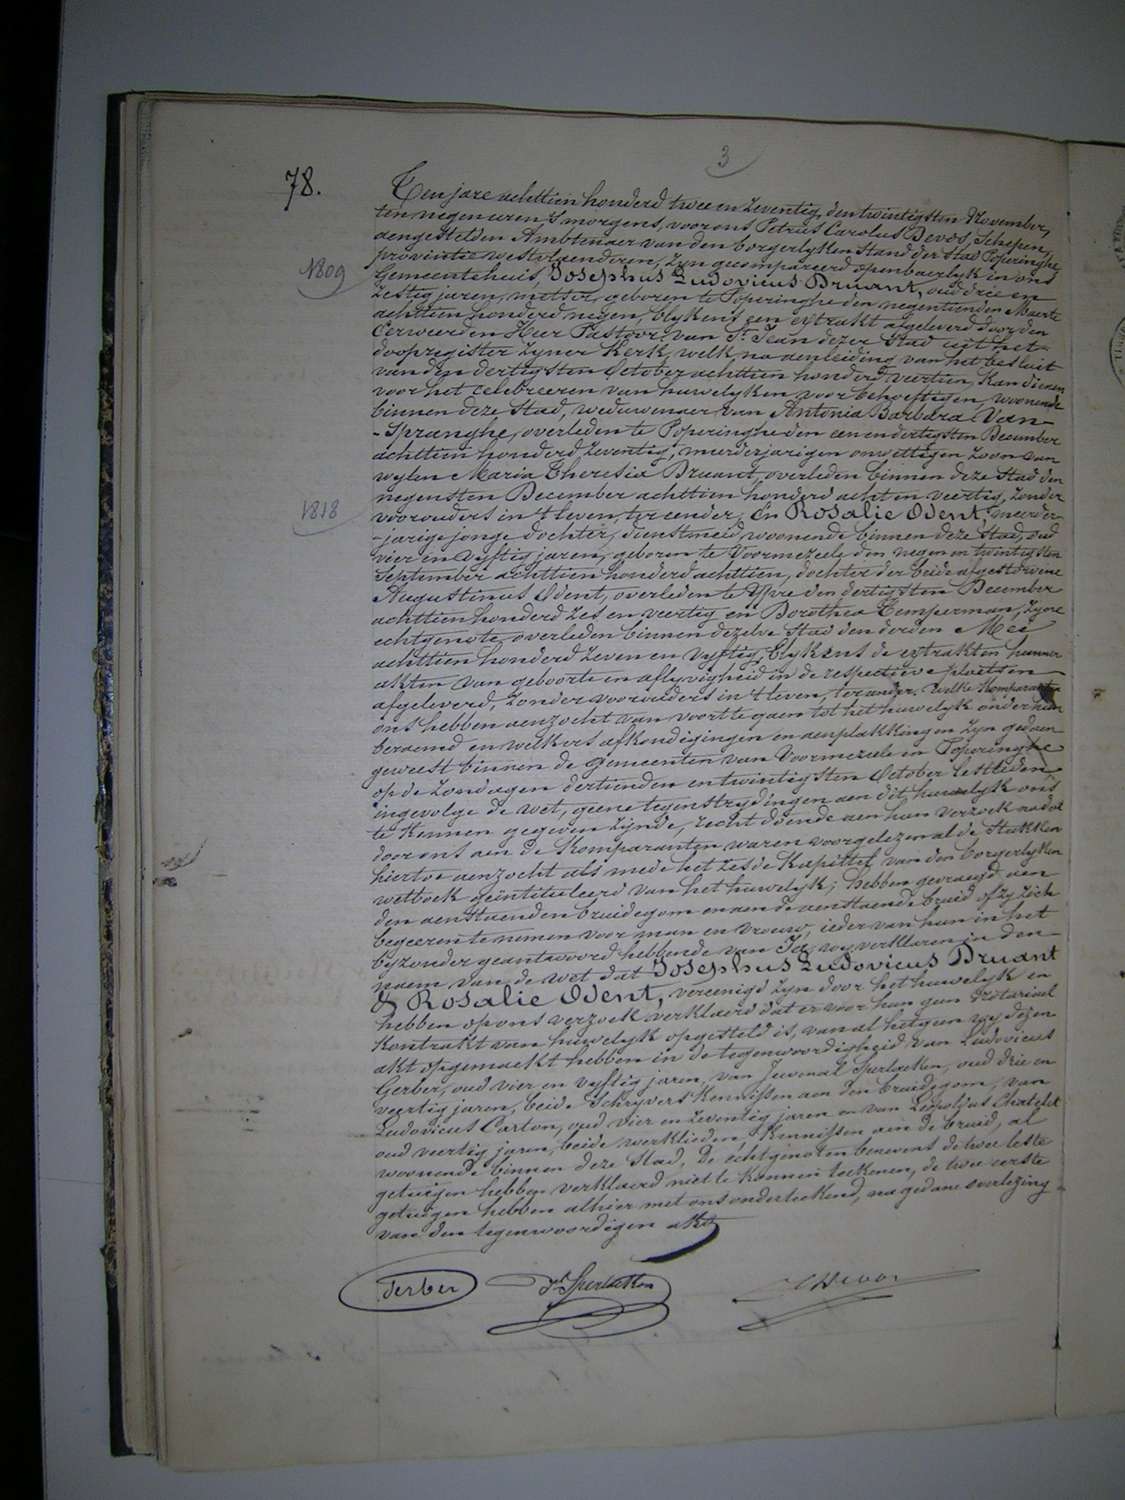 3
78.
Ten jare achttien honderd twee en zeventig, den twintigsten November,
ten negen uren 's morgens, voor ons Petrus Carolus Devos, Schepen,
aengestelden Ambtenaer van den borgerlyken Stand der Stad Poperinghe,
provintie westvlaenderen, zyn gecompareerd openbaerlyk in ons
1809
Gemeentehuis, Josephus Ludovicus Bruant, oud drie en
zestig jaren, metser, geboren te Poperinghe den negentienden Maerte
achttien honderd negen, blykens een extrakt afgeleverd door den
Eerweerden Heer Pastoor van St Jean dezer Stad uit het
doopregister zyner Kerk, welk, na aenleiding van het besluit
van den dertigsten October achttien honderd veertien, kan dienen
voor het celebreeren van huwelyken voor behoeftigen, woonende
binnen deze Stad, weduwenaer van Antonia Barbara Van-
-Spranghe, overleden te Poperinghe den een en dertigsten December
achttien honderd zeventig, meerderjarigen onwettigen zoon van
wylen Maria Theresia Bruant, overleden binnen deze Stad den
negensten December achttien honderd acht en veertig, zonder
1818
voorouders in 't leven, ter eender, En Rosalie Odent, meerder-
-jarige jonge dochter, dienstmeid, woonende binnen deze Stad, oud
vier en vyftig jaren, geboren te Voormezeele den negen en twintigsten
September achttien honderd achttien, dochter der beide afgestorvene
Augustinus Odent, overleden te Ypre den dertigsten December
achttien honderd zes en veertig en Dorothea Temperman, zyne
echtgenote, overleden binnen dezelve Stad den derden Mei
achttien honderd zeven en vyftig, blykens de extrakten hunner
akten van geboorte en aflyvigheid in de respectieve plaetsen
afgeleverd, zonder voorouders in 't leven, ter ander. Welke Komparanten
ons hebben aenzocht van voort te gaen tot het huwelyk onder hun
beraemd en welkers afkondigingen en aenplakkingen zyn gedaen
geweest binnen de gemeenten van Voormezeele en Poperinghe
op de zondagen dertienden en twintigsten October lestleden
ingevolge de wet, geene tegenstrydingen aen dit huwelyk ons
te kennen gegeven zynde, recht doende aen hun verzoek nadat
door ons aen de Komparanten waren voorgelezen al de Stukken
hiertoe aenzocht als mede het zesde Kapittel van den borgerlyken
wetboek geïntituleerd van het huwelyk; hebben gevraegd aen
den aenstaenden bruidegom en aen de aenstaende bruid of zy zich
begeeren te nemen voor man en vrouw, ieder van hun in het
byzonder geantwoord hebbende van Ja, wy verklaren in den
naem van de wet dat Josephus Ludovicus Bruant
& Rosalie Odent, vereenigd zyn door het huwelyk en
hebben op ons verzoek verklaerd dat er voor hun geen Notariael
Kontrakt van huwelyk opgesteld is, van al hetgeen wy dezen
akt opgemaekt hebben in de tegenwoordigheid van Ludovicus
Gerber, oud vier en vyftig jaren, van Juvenal Sperlaeken, oud drie en
veertig jaren, beide Schryvers Kennissen aen den bruidegom, van
Ludovicus Carton, oud vier en zeventig jaren en van Leopoldus Chatelet
oud veertig jaren, beide werklieden Kennissen aen de bruid, al
woonende binnen deze Stad. De echtgenoten benevens de twee leste
getuigen hebben verklaerd niet te konnen teekenen, de twee eerste
getuigen hebben alhier met ons onderteekend, na gedane voorlezing
van den tegenwoordigen akt.